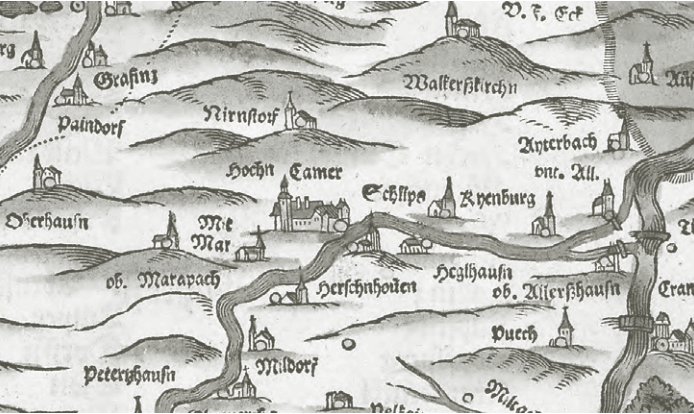 V. F. Eck
Grafing
Walkerßkirchn
Paindorf
Nirnstorf
Ayterbach
vnt. All.
Hochn Camer
Schlips
Ryenburg
Oberhausn
Mit
Mar
ob. Marapach
Herschnhouen
Heglhausn
ob. Allerßhausn
Puech
Mildorf
Peterßhausn